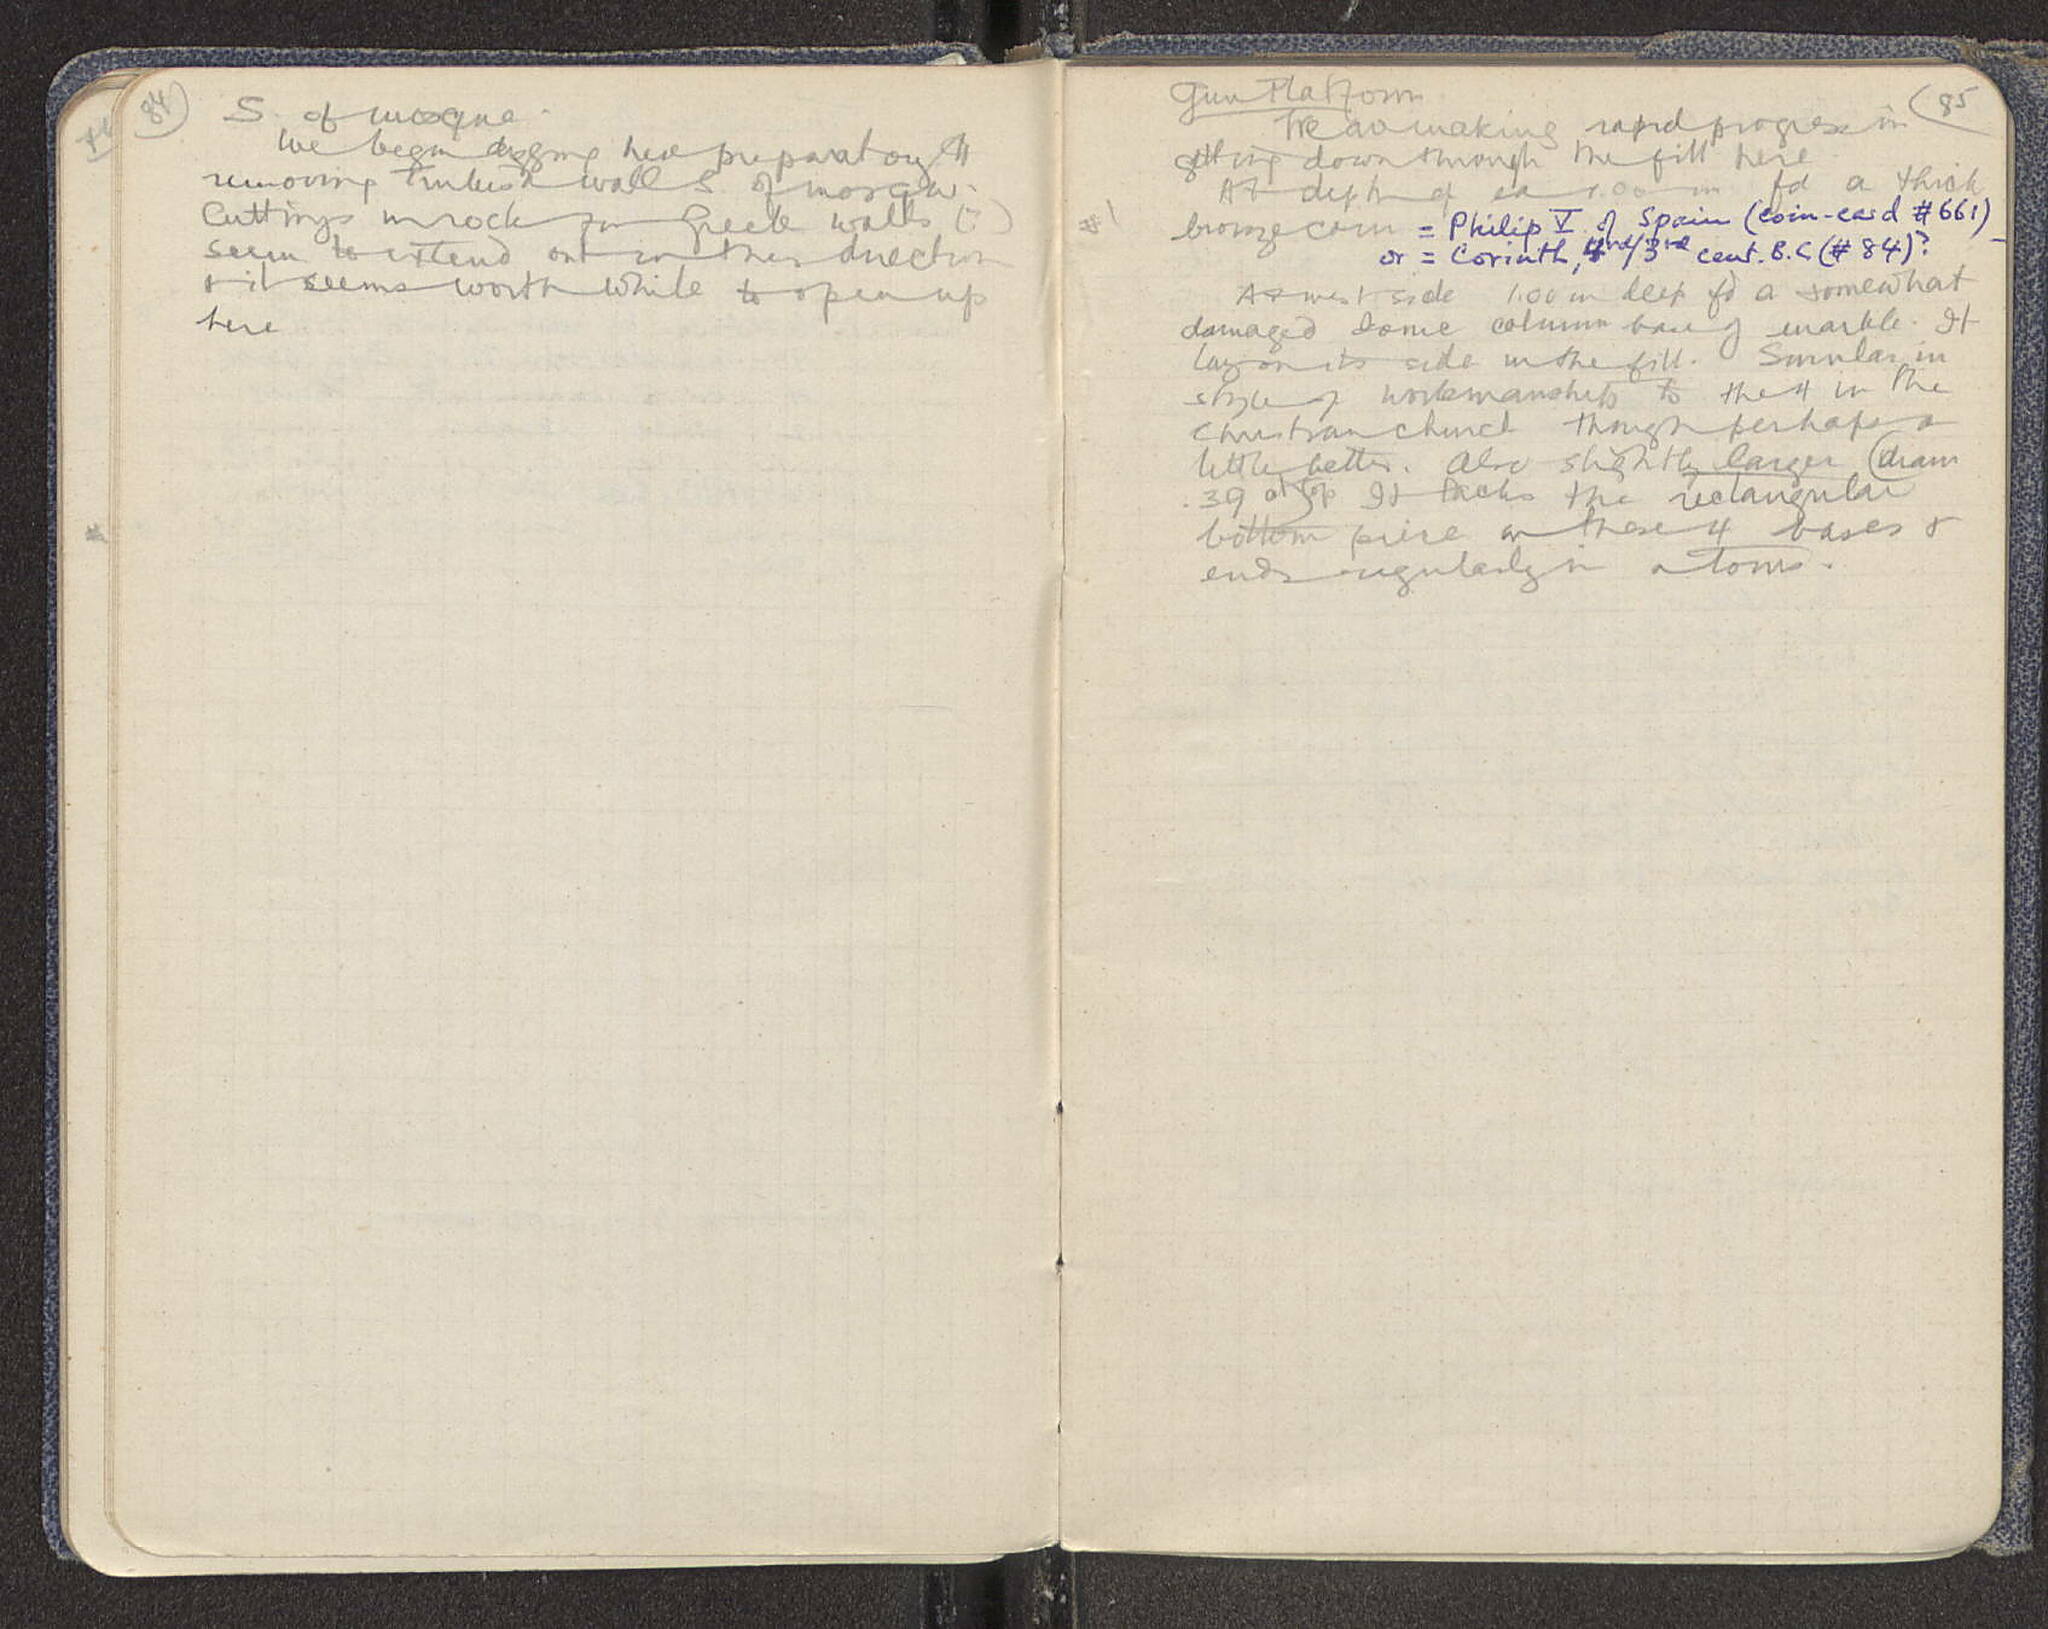 84
S. of mosque.
We begin digging here preparatory to
removing Turkish walls S. of mosque.
Cuttings in rock for Greek walls (?)
seem to extend out in this direction
& it seems worth while to open up
here
85
Gun Platform
We are making rapid progress in
getting down through the fill here.
At depth of ca 1.00 m fd a thick
#1
bronze coin = Philip V of Spain (coin-card #661)
or = Corinth, 4th/3rd cent. B.C (#84)?
At west side 1.00 m deep fd a somewhat
damaged Ionic column base of marble. It
lay on its side in the fill. Similar in
style of workmanship to the 4 in the
Christian church though perhaps a
little better. Also slightly larger (diam
.39 at top It lacks the rectangular
bottom piece on these 4 bases &
ends regularly in a torus.